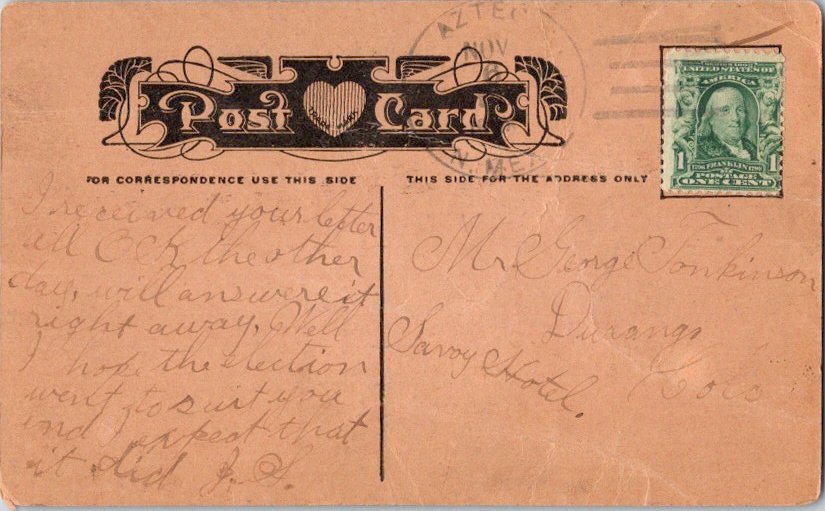 Post Card
AZTEC
NOV
N. MEX.
UNITED STATES OF
AMERICA
1 1706 FRANKLIN 1790 1
POSTAGE
ONE CENT
FOR CORRESPONDENCE USE THIS SIDE
THIS SIDE FOR THE ADDRESS ONLY
I received your letter
all O K the other
day, will answere it
right away. Well
I hope the election
went to suit you
and I expect that
it did J. S.
Mr George Tonkinson
Durango
Savoy Hotel. Colo